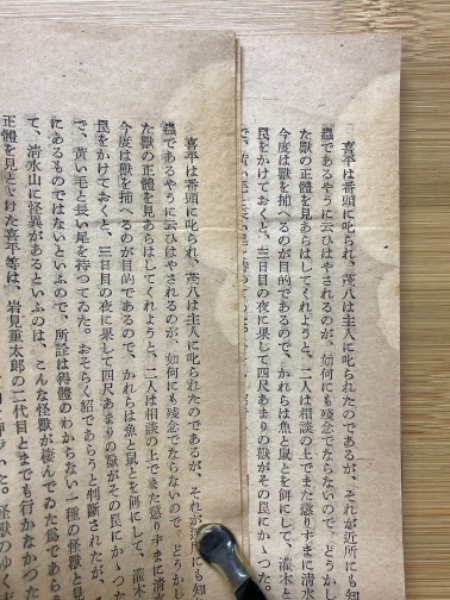 喜平は番頭に叱られ、茂八は主人に叱られたのであるが、それが近所にも知
蟲であるやうに云ひはやされるのが、如何にも殘念でならないので、どうかし
た獸の正體を見あらはしてくれようと、二人は相談の上でまた懲りずまに清水
今度は獸を捕へるのが目的であるので、かれらは魚と鼠とを餌にして、灌木と
罠をかけておくと、三日目の夜に果して四尺あまりの獸がその罠にかゝつた。
で、黄い毛と長い尾を持つて
喜平は番頭に叱られ、茂八は主人に叱られたのであるが、それが近所にも知
蟲であるやうに云ひはやされるのが、如何にも殘念でならないので、どうかし
た獸の正體を見あらはしてくれようと、二人は相談の上でまた懲りずまに清水
今度は獸を捕へるのが目的であるので、かれらは魚と鼠とを餌にして、灌木と
罠をかけておくと、三日目の夜に果して四尺あまりの獸がその罠にかゝつた
で、黄い毛と長い尾を持つてゐた。おそらく貂であらうと判斷されたが、
にあるものではないといふので、所詮は得體のわからない一種の怪獸と見
て、清水山に怪異があるといふのは、こんな怪獸が棲んでゐた爲であらう
正體を見とゞけた喜平等は、岩見重太郎の二代目とまでも行かなかつた
た。怪獸のゆく